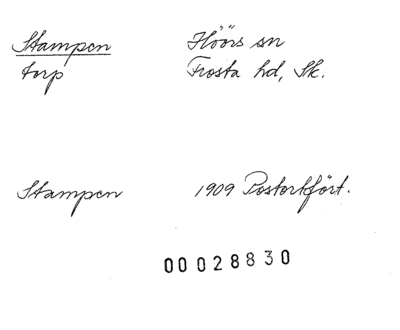 Stampen Höörs sn
torp Frosta hd, Sk.
Stampen 1909 Postortfört.
00028830